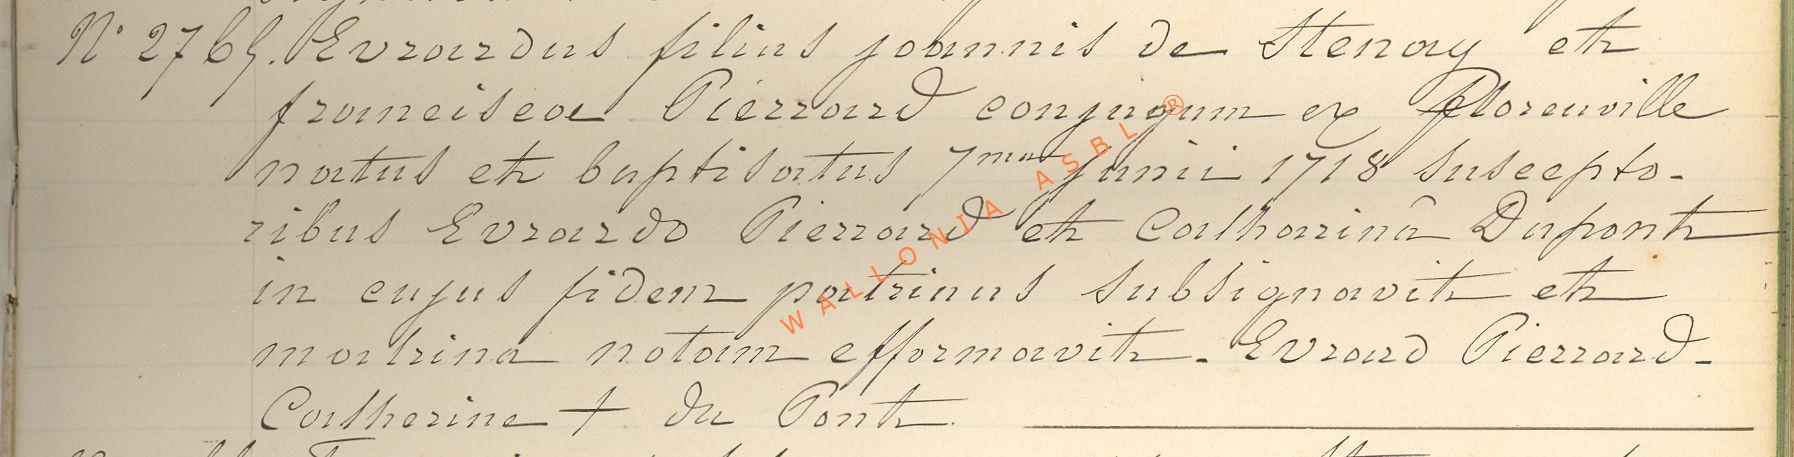 N° 2765. Evrardus filius joannis de Stenay et
franciscae Pierrard conjugum ex florenville
natus et baptisatus 7ma junii 1718 suscepto-
ribus Evrardo Pierrard et Catharinâ Dupont
in cujus fidem patrinus subsignavit et
matrina notam efformavit. Evrard Pierrard-
Catherine + du Pont.
WALLONIA ASBL ®